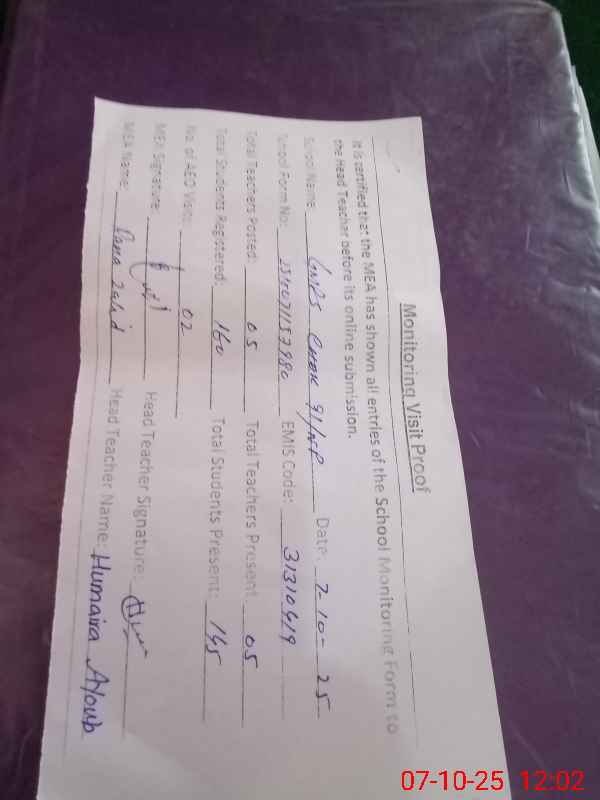 Monitoring Visit Proof
It is certified that the MEA has shown all entries of the School Monitoring Form to
the Head Teacher before its online submission.
School Name: GMPS Chak 91/NP Date: 7-10-25
School Form No: EMIS Code: 31310419
Total Teachers Posted: 05 Total Teachers Present: 05
Total Students Registered: 160 Total Students Present: 145
No. of AEO Visits: 02
MEA Signature: Head Teacher Signature:
MEA Name: Rana Zahid Head Teacher Name: Humaira Ayoub
07-10-25 12:02